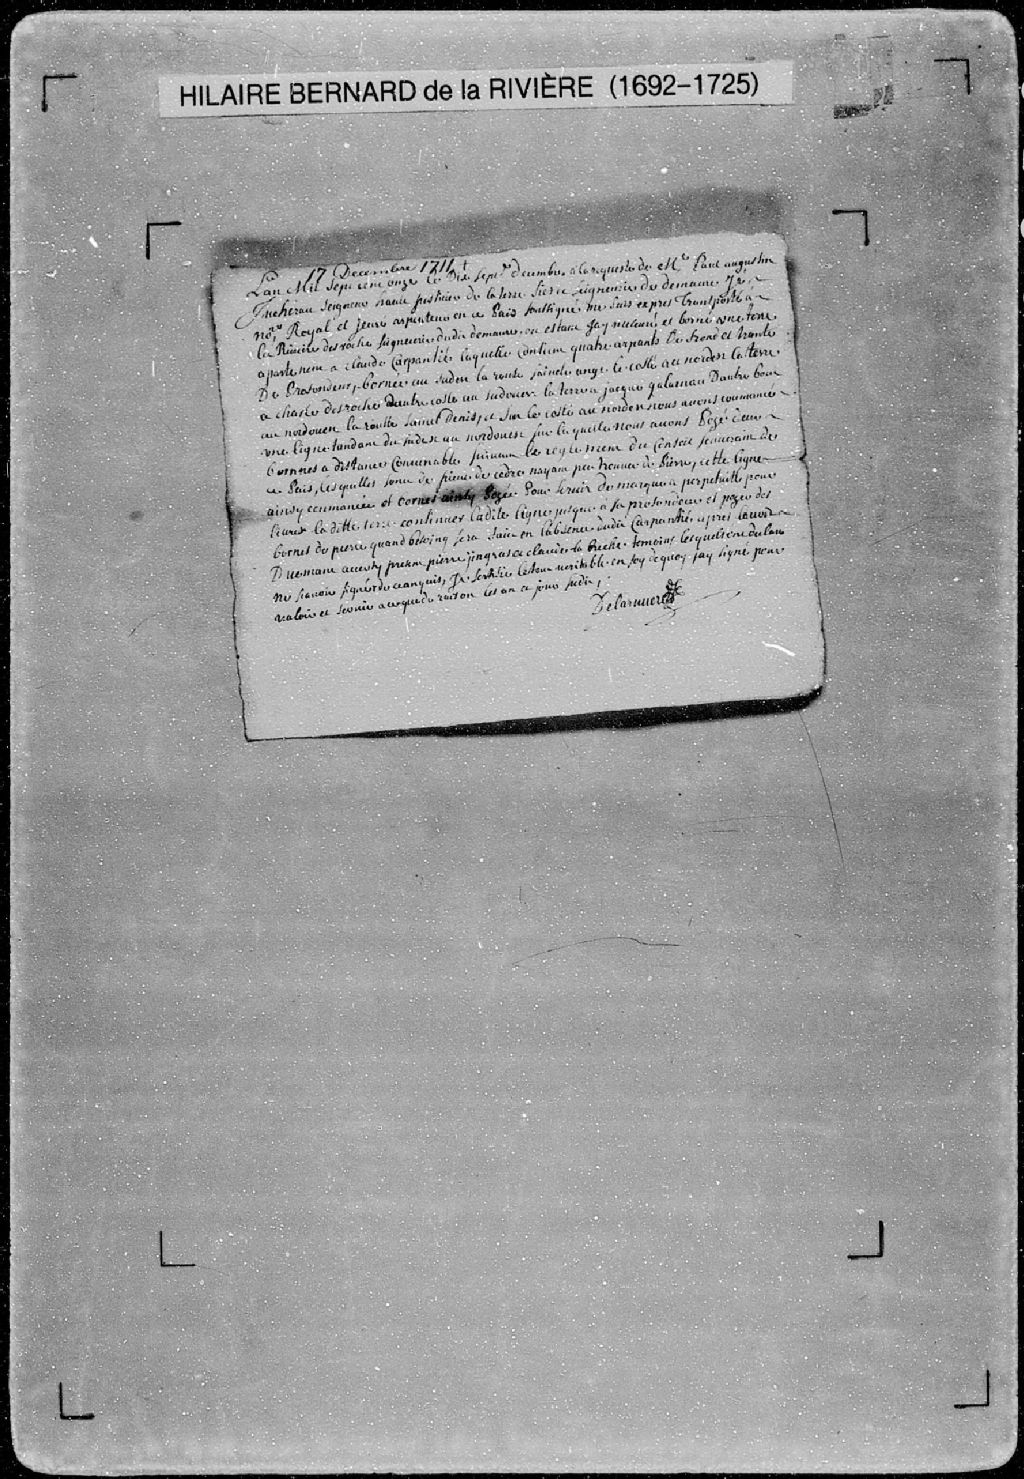 HILAIRE BERNARD de la RIVIÈRE (1692-1725)
17 Decembre 1711
L'an Mil Sept cent onze le Dix sept.e decembre a la requeste de M.e Paul augustin
Juchereau Seigneur haute Justice de la terre fief et seigneurie de demaure
Royal et Juré arpenteur en ce Païs soussigné me suis expres Transporté a
la Riviere des roche seigneurie dudit demaure, ou estant Jay mesuré et borné une terre
apartenent a claude Carpantié laquelle contien quatre arpants De frond et trante
De Profondeur, bornée au sudest la routte sainte ange le costé au nordest la terre
a charle desroche Dautre costé au sudouest la terre a jacque galarneau Dautre bout
au nordouest la routte saint Denis, et Sur le costé au nordest nous avons commancé
une ligne tandant du sudest au nordouest sur laquelle nous avons Pozé deux
bornes a distance Convenable suivant le reglement du Conseil souverain de
ce Païs, lesquelles sont de pieux de cedre nayant peu trouver de Pierre, cette ligne
ainsy commancée et bornes ainsy Pozée Pour servir de marque a perpetuitté pour
la ditte terre continuer ladite ligne jusque a sa profondeur et pozer des
bornes de pierre quand besoing sera faict en labsence dudit Carpantié apres
present pierre jingras et claude la breche temoins lesquels ont declaré
ne scavoir signer de ce anquis, Je sertifie lestout veritable en foy de quoy Jay signé pour
valoir et servir a ce que de raison les an et jour susdit;
Delariviere